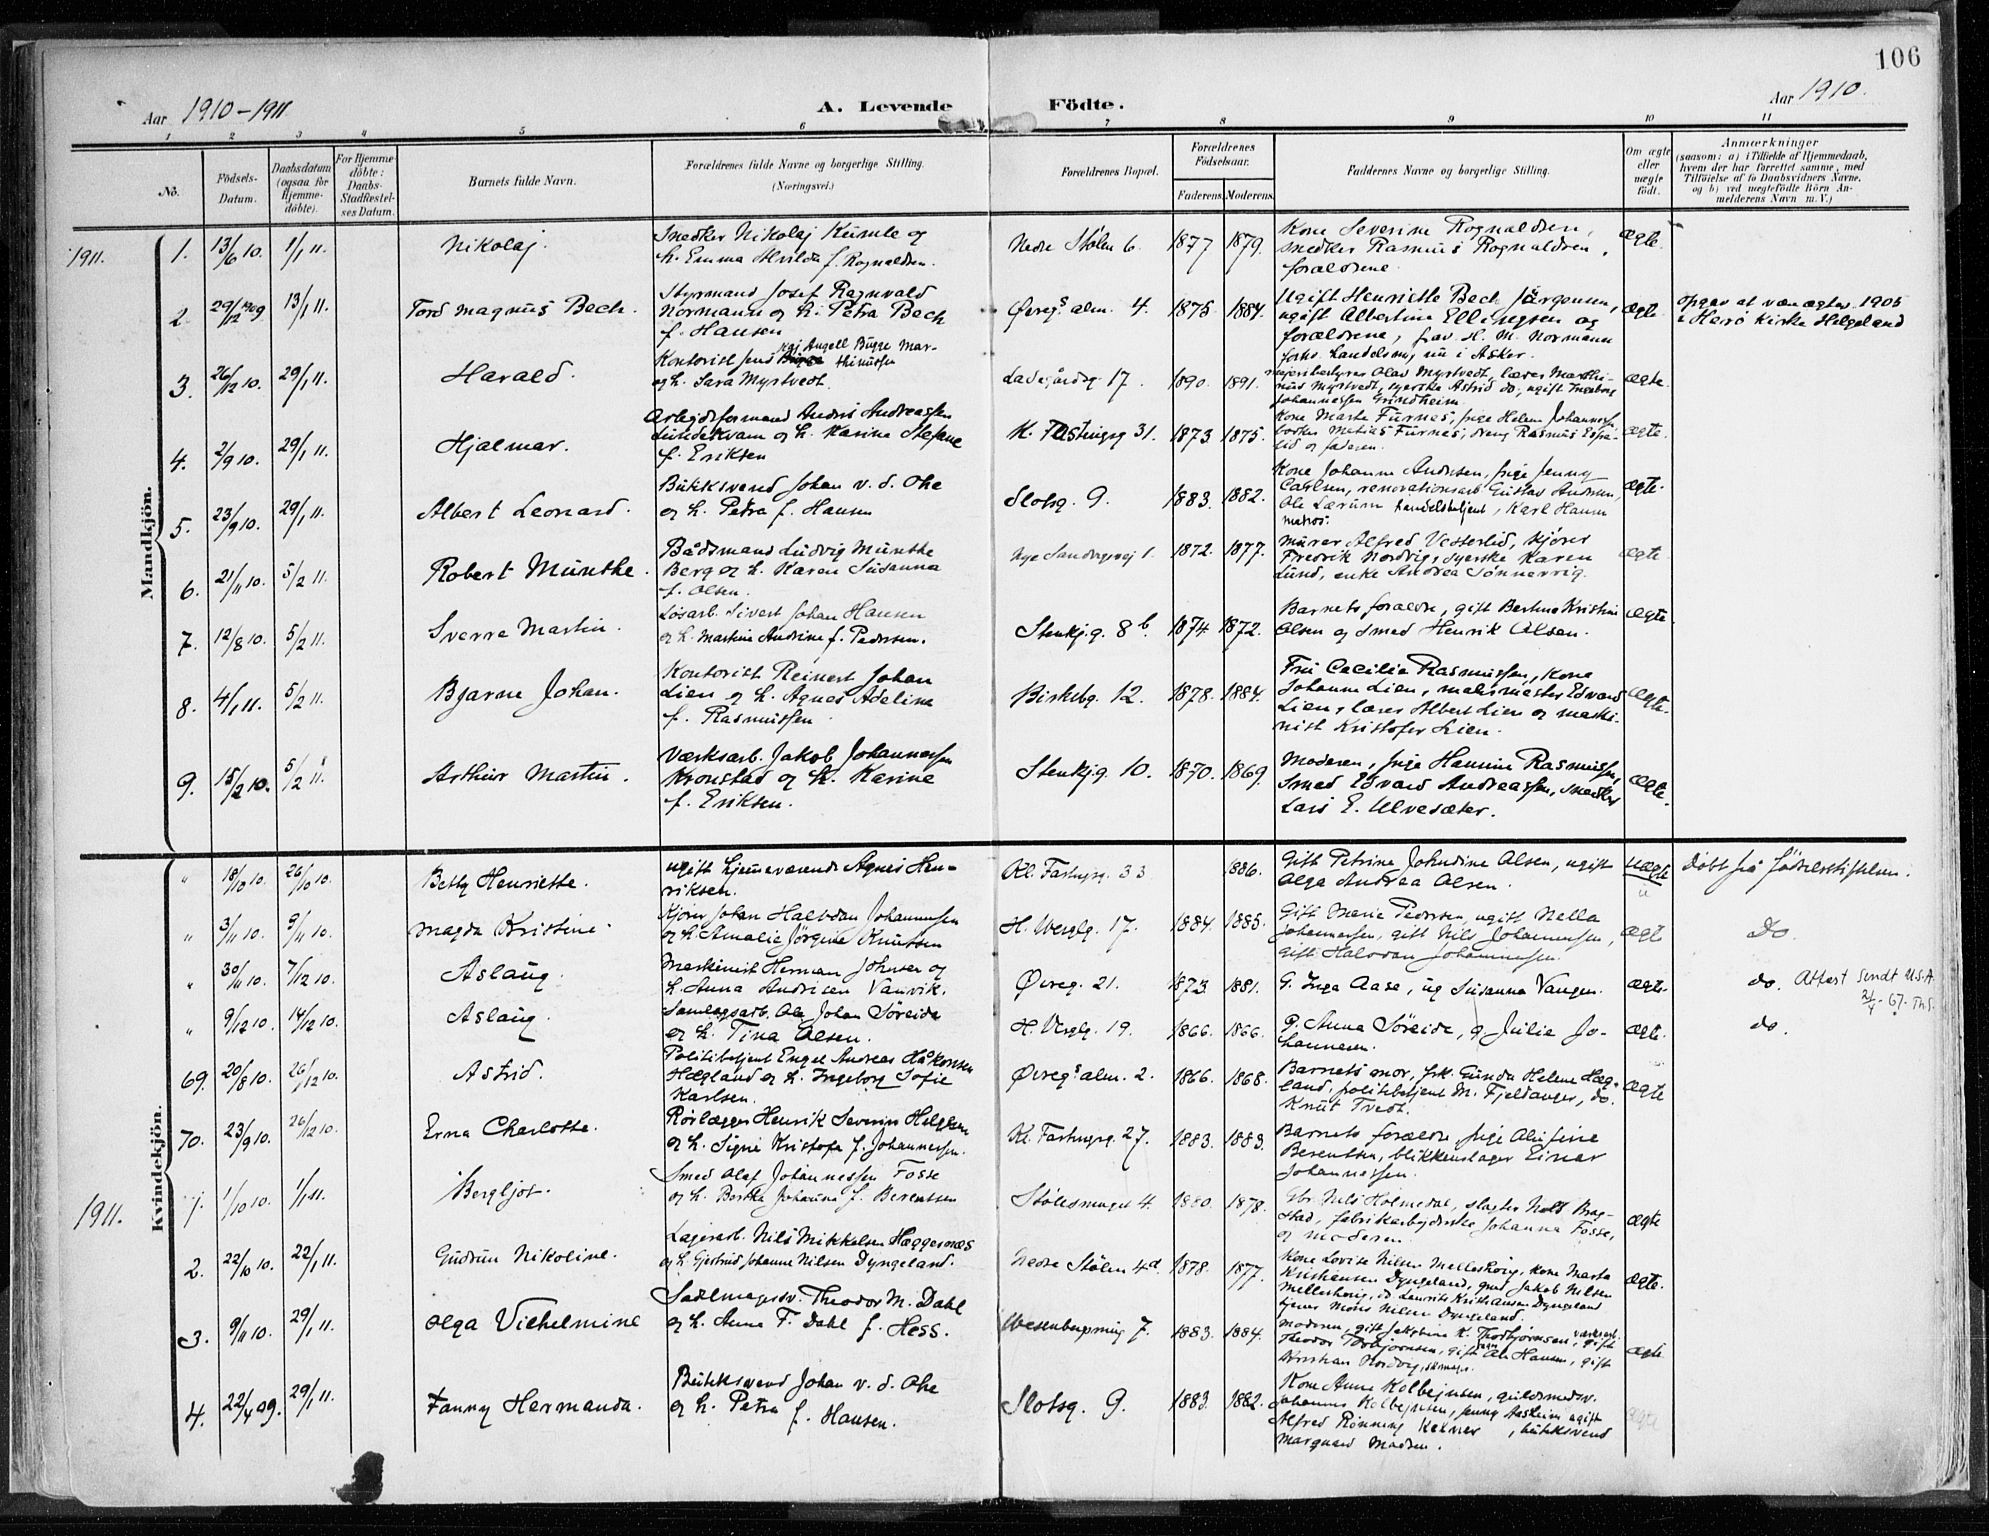 106
Aar 1910-1911
A. Levende Födte.
Aar 1910.
1 2 3 4 5 6 7 8 9 10 11
No.
Födsels-Datum.
Daabsdatum (ogsaa for Hjemmedöbte).
For Hjemmedöbte: Daabs-Stadfæstelses Datum.
Barnets fulde Navn.
Forældrenes fulde Navne og borgerlige Stilling.
(Næringsvei.)
Forældrenes Bopæl.
Forældrenes Födselsaar.
Faderens. Moderens.
Faddernes Navne og borgerlige Stilling.
Om ægte eller uægte födt.
Anmærkninger
(saasom: a) i Tilfælde af Hjemmedaab, hvem der har forrettet samme, med Tilföielse af to Daabsvidners Navne, og b) ved uægtefödte Börn Anmelderens Navn m. V.)
Mandkjön.
1911. 1. 13/6 10. 1/1 11. Nikolaj. Snedker Nikolaj Kumle og
h. Emma Hulda f. Rognaldsen. Nedre Stølen 6. 1877 1879. Kone Severine Rognaldsen,
snedker Rasmus Rognaldsen,
forældrene. ægte.
2. 29/12 1909 13/1 11. Tord Magnus Bech. Styrmand Josef Ragnvald
Normann og h. Petra Bech
f. Hansen Øvregs alm. 4. 1875 1884. Ugift Henriette Bech Jörgensen,
ugift Albertine Ellingsen og
forældrene, frav. H. M. Normann
forhv. handelsm, nu i Asker. ægte. opgav at være ægtev. 1905
i Herö Kirke Helgeland
3. 26/12 10. 29/1 11. Harald. Kontorist Jens Angell Bugge Marthinussen
og h. Sara Myrtvedt. Ladegårdsg 17. 1890. 1891. Olav Myrtvedt, lærer Marthinus Myrtvedt, syerske Astrid do, ugift Ingeborg
Johannessen Grindheim. ægte.
4. 2/9 10. 29/1 11. Hjalmar. Arbejdsformand Andris Andreassen
Lundekvam og h. Karine Stefane
f. Eriksen K. Fastingsg 31. 1873 1875. Kone Marta Furnes, pige Helene Johannessen
Matias Furnes, dreng Rasmus
og faderen. ægte.
5. 23/9 10. 29/1 11. Albert Leonard. Butiksvend Johan v. d. Ohe
og h. Petra f. Hansen Slotsg. 9. 1883. 1882. Kone Johanne Andersen, pige Jenny
Carlsen, renovationsarb. Gustav Andersen,
Ole Lærum handelsbetjent, Karl Hansen
matros. ægte.
6. 21/11 10. 5/2 11. Robert Munthe. Bådsmand Ludvig Munthe
Berg og h. Karen Susanna
f. Olsen. Nye Sandvigsvej 1. 1872. 1877. Murer Alfred Vesterlid, kjører
Fredrik Nordvig, syerske Karen
Lund, enke Andrea Sønnervig. ægte
7. 12/8 10. 5/2 11. Sverre Martin. Løsarb. Sivert Johan Hansen
og h. Martine Andrine f. Pedersen. Stenkj.g. 8 b. 1874. 1872. Barnets forældre, gift Bertine Kristine
Olsen og smed Henrik Olsen. ægte.
8. 4/1 11. 5/2 11. Bjarne Johan. Kontorist Reinert Johan
Lien og h. Agnes Adeline
f. Rasmussen Birkebg. 12. 1878. 1884. Fru Cecilie Rasmussen, kone
Johanne Lien, malermester Edvard
Lien, lærer Albert Lien og maskinist Kristofer Lien. ægte.
9. 15/2 10. 5/2 11. Arthur Martin. Værksarb. Jakob Johannessen
Kronstad og h. Karine
f. Eriksen. Stenkjg 10. 1870. 1869. Moderen, pige Hannine Rasmussen,
smed Edvard Andreassen, snedker
Lars E. Ulvesæter. ægte.
Kvindekjön.
" 18/10 10. 26/10 10. Betty Henriette. ugift hjemmeværende Agnes Henriksen. Kl. Fastingsg 33 1886. Gift Petrine Johndine Olsen, ugift
Olga Andrea Olsen. uægte Døbt på Fødselsstiftelsen.
" 3/11 10. 9/11 10. Magda Kristine. Kjører Johan Halvdan Johannessen
og h. Amalie Jørgine Knutsen H. Wesselg. 17. 1884. 1885. Gift Marie Pedersen, ugift Nella
Johannessen, gift Nils Johannessen,
gift Halvdan Johannessen. ægte Do.
" 30/11 10. 7/12 10. Aslaug. Maskinist Herman Johnsen og
h. Anna Andrisen Vannvik. Øvreg. 21. 1873. 1881. G. Inga Aase, ug Susanna Vangen. ægte. do. Attest sendt U.S.A.
21/4-67. Th.S.
" 9/12 10. 14/12 10. Aslaug. Samlagsarb. Ole Johan Søreide
og h. Tina Olsen. H. Wesslg. 19. 1866. 1866. g. Anna Søreide, g. Julie Johannesen. ægte. do.
69. 20/8 10. 26/12 10. Astrid. Politibetjent Engel Andreas Håkonsen
Hægland og h. Ingeborg Sofie
Karlsen. Øvregs alm. 2. 1866. 1868. Barnets mor, frk. Gunda Helene Hægland, politibetjent M. Fjeldanger, do.
Knut Tvedt. ægte
70. 23/9 10. 26/12 10. Erna Charlotte. Rørlægger Henrik Severin Helgesen
og h. Signe Kristofa f. Johannessen. Kl. Fastingsg. 27. 1883. 1883. Barnets forældre, pige Alufine
Berentsen, blikkenslager Einar
Johannessen. ægte.
1911. 1. 1/10 10. 1/1 11. Bergljot. Smed Olaf Johannessen Fosse
og h. Berthe Johanna f. Berentsen Stølesmuget 4. 1880. 1878. Nils Holmedal, slagter Nils
fabrikarbejderske Johanna Fosse,
og moderen. ægte
2. 22/10 10. 22/1 11. Gudrun Nikoline. Lagerarb. Nils Mikkelsen Hæggernæs
og h. Gjertrud Johanne Nilsen Dyngeland. Nedre Stølen 4d. 1878. 1877. Kone Lovise Nilsen Mellesborg, kone Marta
Kristiansen Dyngeland, Jakob Nilsen
do Laurits Kristiansen Dyngeland
Mons Nilsen Dyngeland. ægte.
3. 9/11 10. 29/1 11. Olga Vilhelmine Sadelmagersv. Theodor M. Dahl
og h. Anne F. Dahl f. Hess. Wesenbergsmug 7. 1883. 1884. Moderen, gift Jakobine K. Thorbjørnsen, værksarb.
Theodor Torbjørnsen, gift Hansen, gift
Kristian Nordvig, skomagr. ægte
4. 22/4 09. 29/1 11. Fanny Hermanda. Butiksvend Johan v. d. Ohe
og h. Petra f. Hansen. Slotsg. 9. 1883. 1882. Kone Anne Kolbejnsen, guldsmedsv.
Johannes Kolbejnsen, Jenny Aasheim ugift
Alfred Rønning kelner, butiksvend
Marquard Madsen. ægte